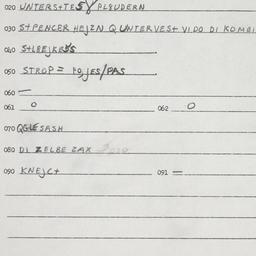 020 UNTERSTTES PLEUDERN
030 STPENCER HEJZN Q UNTERVEST VI DO DI KOMBI
040 STLBEJKELS
050 STROP = POJES/PAS
060 —
061 0 062 0
070 SASH
080 DI ZELBE ZAX
090 KNEJCT 091 —